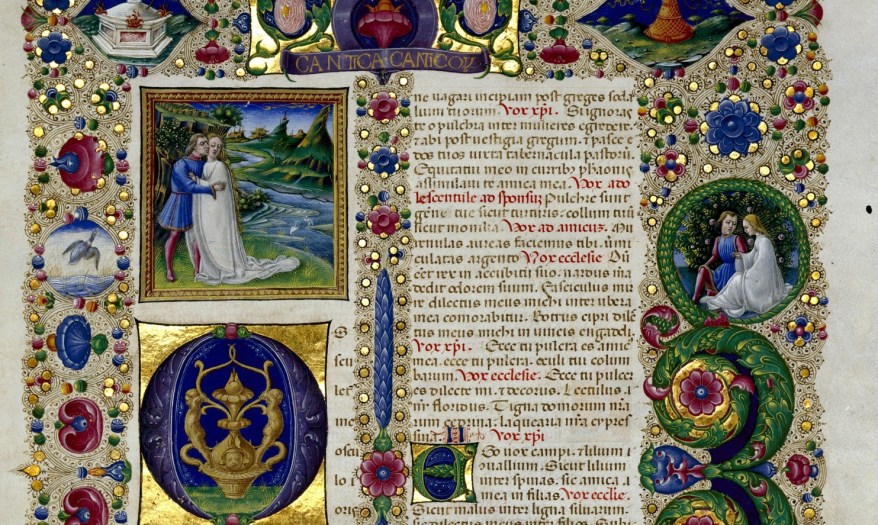 CANTICA·CANTICOꝜ
ne vagari incipiam post greges soda
lium tuorum. Vox xp̄i. Si ignoras
te o pulchra inter mulieres egredere.
⁊ abi post vestigia gregum. ⁊ pasce e
dos tuos iuxta tabernacula pastorū.
Equitatui meo in curribꝫ pharonis
assimilavi te amica mea. Vox ado
lescentule ad sponsūz Pulchre sunt
gene tue sicut turturis. collum tuū
sicut monilia. Vox ad amicūz. Mu
renulas aureas faciemus tibi. ūmi
culatas argento. Vox ecclesie. Dū
eēt rex in accubitu suo. nardus mā
dedit odorem suum. Fasciculus mir
re dilectus meus michi inter ubera
mea comorabitur. Botrus cipri dilē
tus meus michi in vineis engadi.
Vox xp̄i. Ecce tu pulcra es amic̄
mea. ecce tu pulcra. oculi tui colum
barum. Vox ecclesie. Ecce tu pulcer
es dilecte mi. ⁊ decorus. Lectulus. n
r̄ floridus. Tigna domorum nr̄a
rum cedrina. laquearia nr̄a cypres
sina. II Vox xp̄i
S
scu
let
me
oscu
lo
Ego vox campi. ⁊ lilium
convallium. Sicut lilium
inter spinas. sic amica
mea in filias Vox ecclie.
Sicut malus inter ligna silvarum.
sic dilectus meus inter filios. Sub